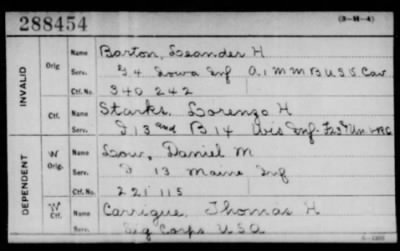 288454
(3-M-4)
INVALID
Orig
Name Barton, Leander H
Serv. G 4 Iowa Inf A. 1 M M B U S S Cav
Ctf. No. 340 242
Ctf.
Name Starks, Lorenzo H
Serv. I 13 and B 14 Wis Inf
DEPENDENT
W Orig.
Name Low, Daniel M
Serv. I 13 Maine Inf
Ctf. No. 221 115
W Ctf.
Name Carrigue, Thomas H
Serv. Sig Corps U.S.A